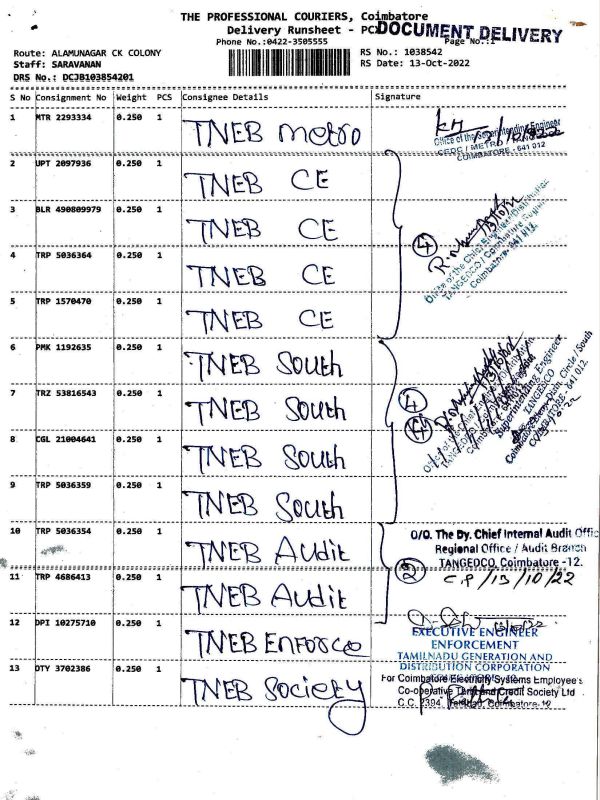 THE PROFESSIONAL COURIERS, Coimbatore
Delivery Runsheet - PCI
DOCUMENT DELIVERY
Phone No.:0422-3505555
Page No.:1
Route: ALAMUNAGAR CK COLONY
RS No.: 1038542
Staff: SARAVANAN
RS Date: 13-Oct-2022
DRS No.: DCJB103854201
S No Consignment No Weight PCS Consignee Details Signature
1 MTR 2293334 0.250 1 TNEB metro
Office of the Superintending Engineer
CEDC / METRO / TANGEDCO
COIMBATORE - 641 012
2 UPT 2097936 0.250 1 TNEB CE
3 BLR 490809979 0.250 1 TNEB CE
4
Office of the Chief Engineer/Distribution
TANGEDCO / Coimbatore Region
Coimbatore - 641 012.
4 TRP 5036364 0.250 1 TNEB CE
5 TRP 1570470 0.250 1 TNEB CE
6 PMK 1192635 0.250 1 TNEB South
7 TRZ 53816543 0.250 1 TNEB South
4
Superintending Engineer
TANGEDCO
COIMBATORE - 641 012.
8 CGL 21004641 0.250 1 TNEB South
9 TRP 5036359 0.250 1 TNEB South
10 TRP 5036354 0.250 1 TNEB Audit
O/O. The Dy. Chief Internal Audit Offic
Regional Office / Audit Branch
TANGEDCO, Coimbatore -12.
11 TRP 4686413 0.250 1 TNEB Audit
2
13/10/22
12 DPI 10275710 0.250 1 TNEB Enforce
EXECUTIVE ENGINEER
ENFORCEMENT
TAMILNADU GENERATION AND
DISTRIBUTION CORPORATION
13 DTY 3702386 0.250 1 TNEB Society
For Coimbatore Electricity Systems Employee's
Co-operative Thrift and Credit Society Ltd
C.C. 2394, Tatabad, Coimbatore-12